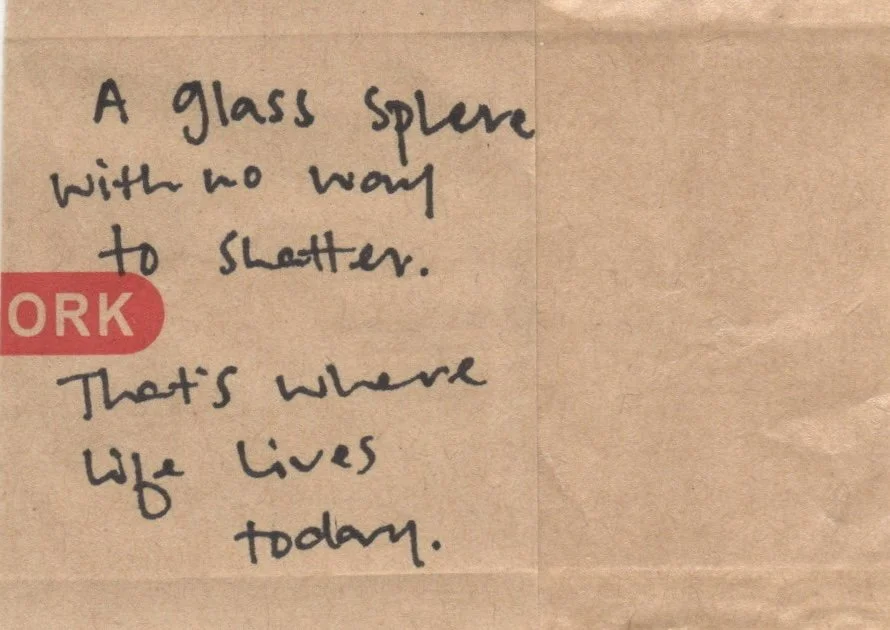 A glass sphere
with no way
to shatter.
ORK
That's where
life lives
today.